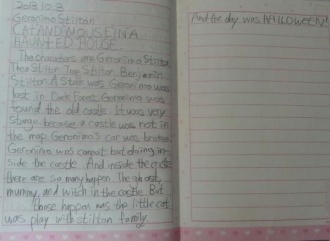 2013.10.3
Geronimo Stilton
CAT AND MOUSE IN A
HAUNTED HOUSE.
The characters are Geronimo Stilton
Thea Stilton Trap Stilton, Benjamin
Stilton. A Stalk was Geronimo was
lost in Dark Forest. Geronimo was
found the old castle. It was very
Stange because a castle was not in
the map. Geronimo's car was broken.
Geronimo was cannot but doing in-
side the castle. And inside the castle
there are so many happen. The ghost,
mummy, and witch in the castle. But
those happen was the little cat
was play with stilton family.
And the day was HALLOWEEN!